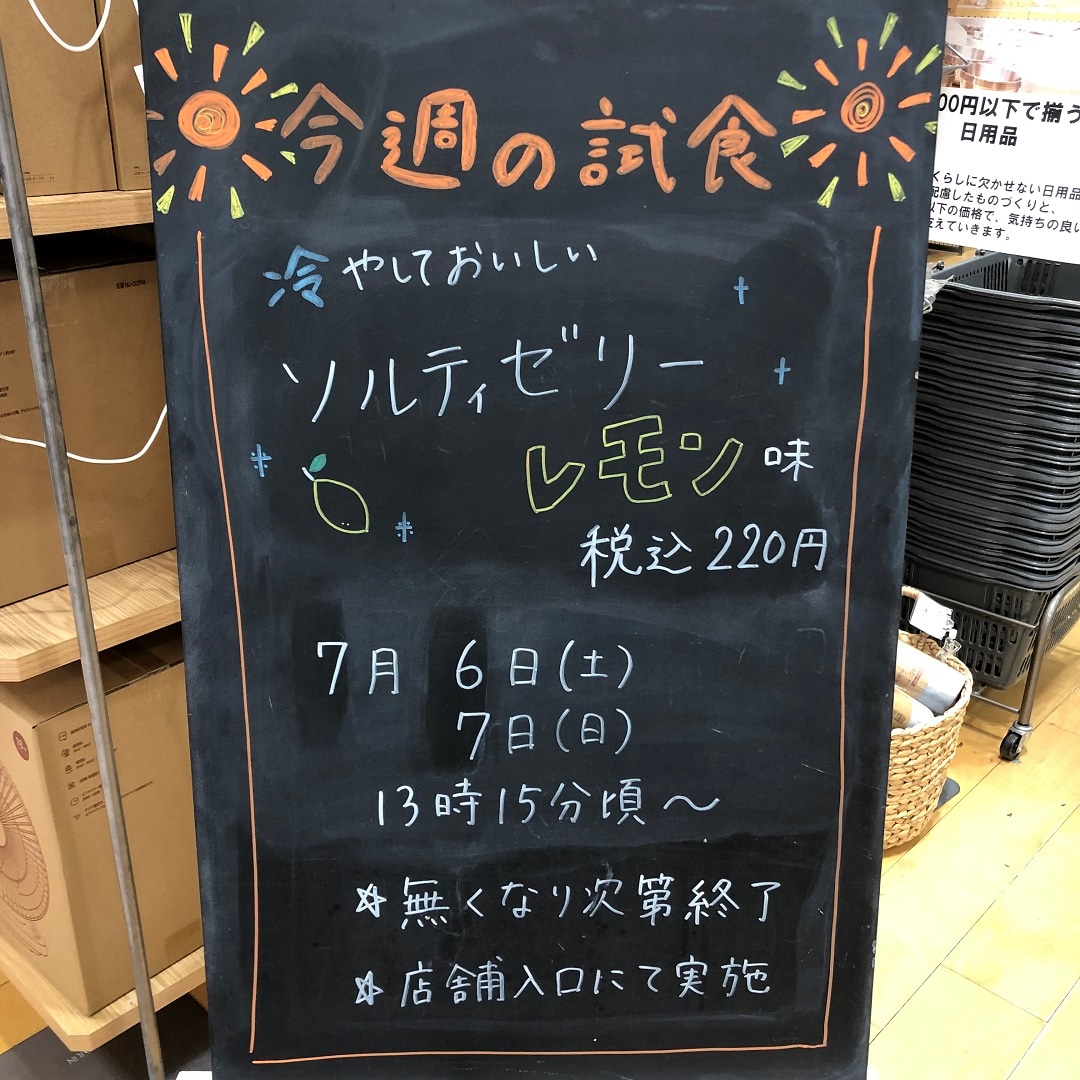 今週の試食
冷やしておいしい
ソルティゼリー
レモン味
税込220円
7月 6日(土)
7日(日)
13時15分頃〜
☆無くなり次第終了
☆店舗入口にて実施
00円以下で揃う
日用品
くらしに欠かせない日用品
配慮したものづくりと、
以下の価格で、気持ちの良い
支えていきます。